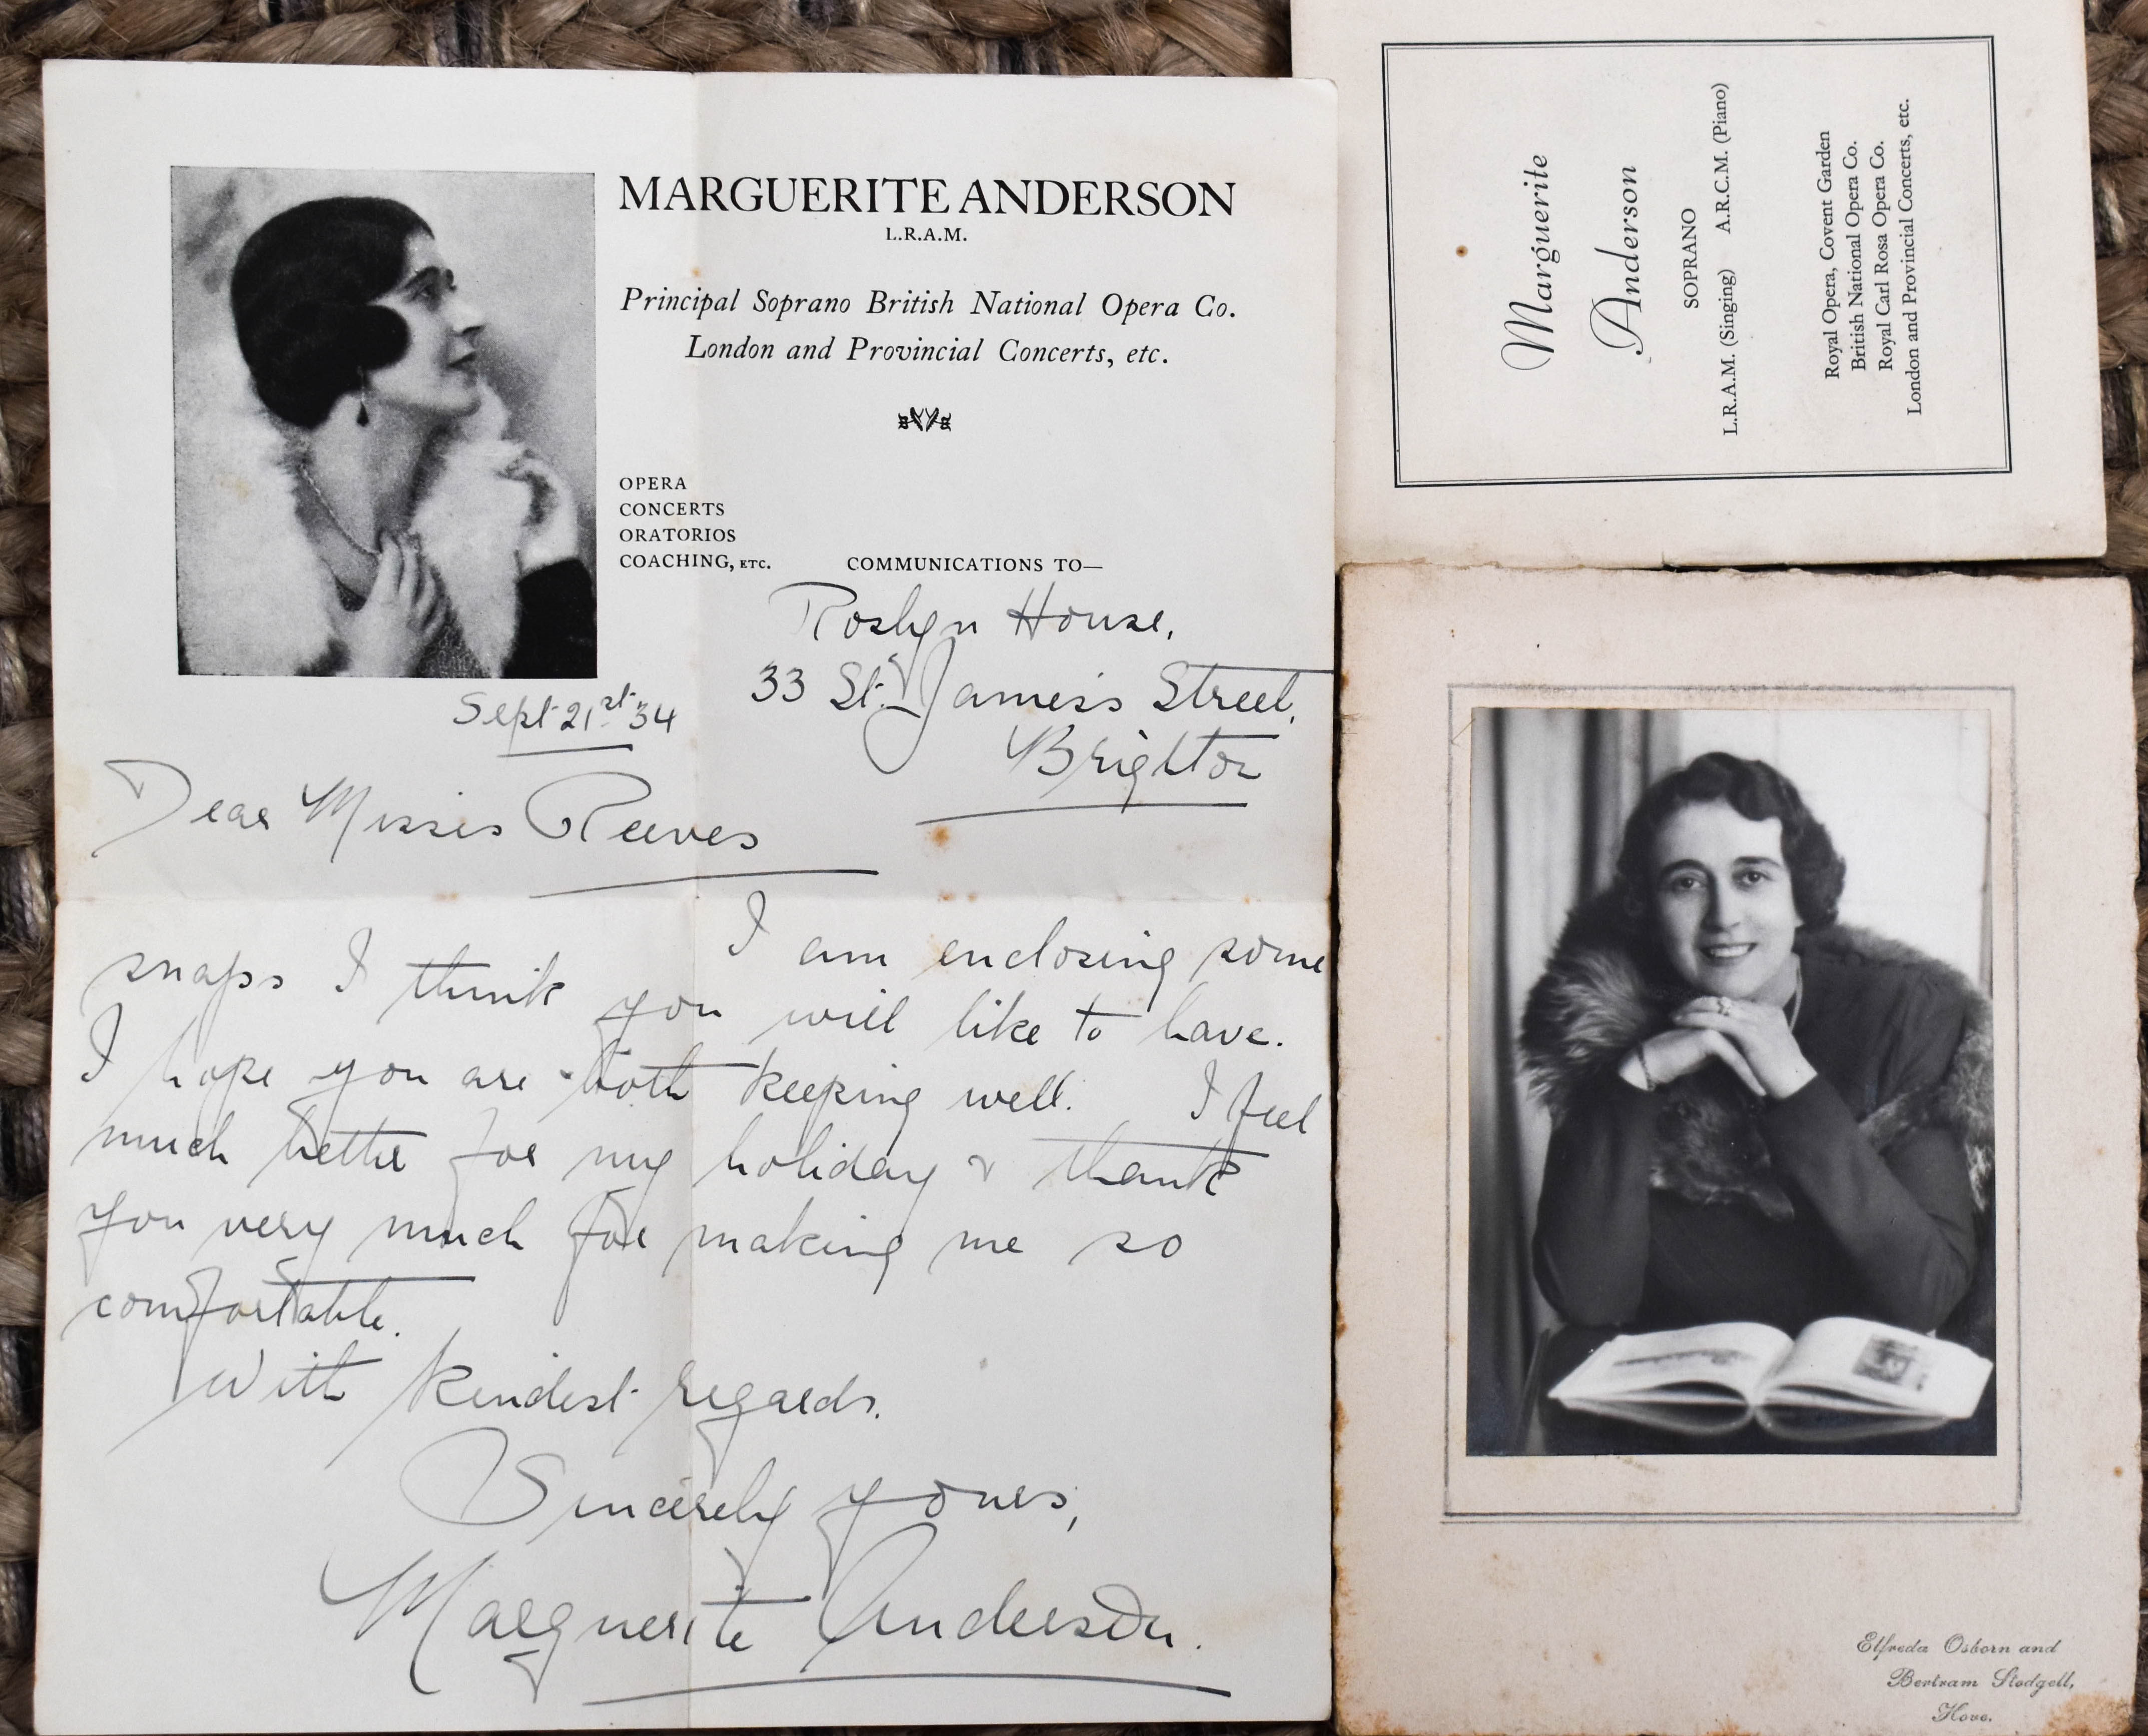 MARGUERITE ANDERSON
L.R.A.M.
Principal Soprano British National Opera Co.
London and Provincial Concerts, etc.
OPERA
CONCERTS
ORATORIOS
COACHING, ETC.
COMMUNICATIONS TO—
Roslyn House,
33 St. James's Street,
Brighton
Sept. 21st '34
Dear Misses Reeves
I am enclosing some
snaps I think you will like to have.
I hope you are both keeping well. I feel
much better for my holiday & thank
you very much for making me so
comfortable.
With kindest regards.
Sincerely yours,
Marguerite Anderson.
Marguerite
Anderson
SOPRANO
L.R.A.M. (Singing) A.R.C.M. (Piano)
Royal Opera, Covent Garden
British National Opera Co.
Royal Carl Rosa Opera Co.
London and Provincial Concerts, etc.
Elfreda Osborn and
Bertram Stodgell,
Hove.